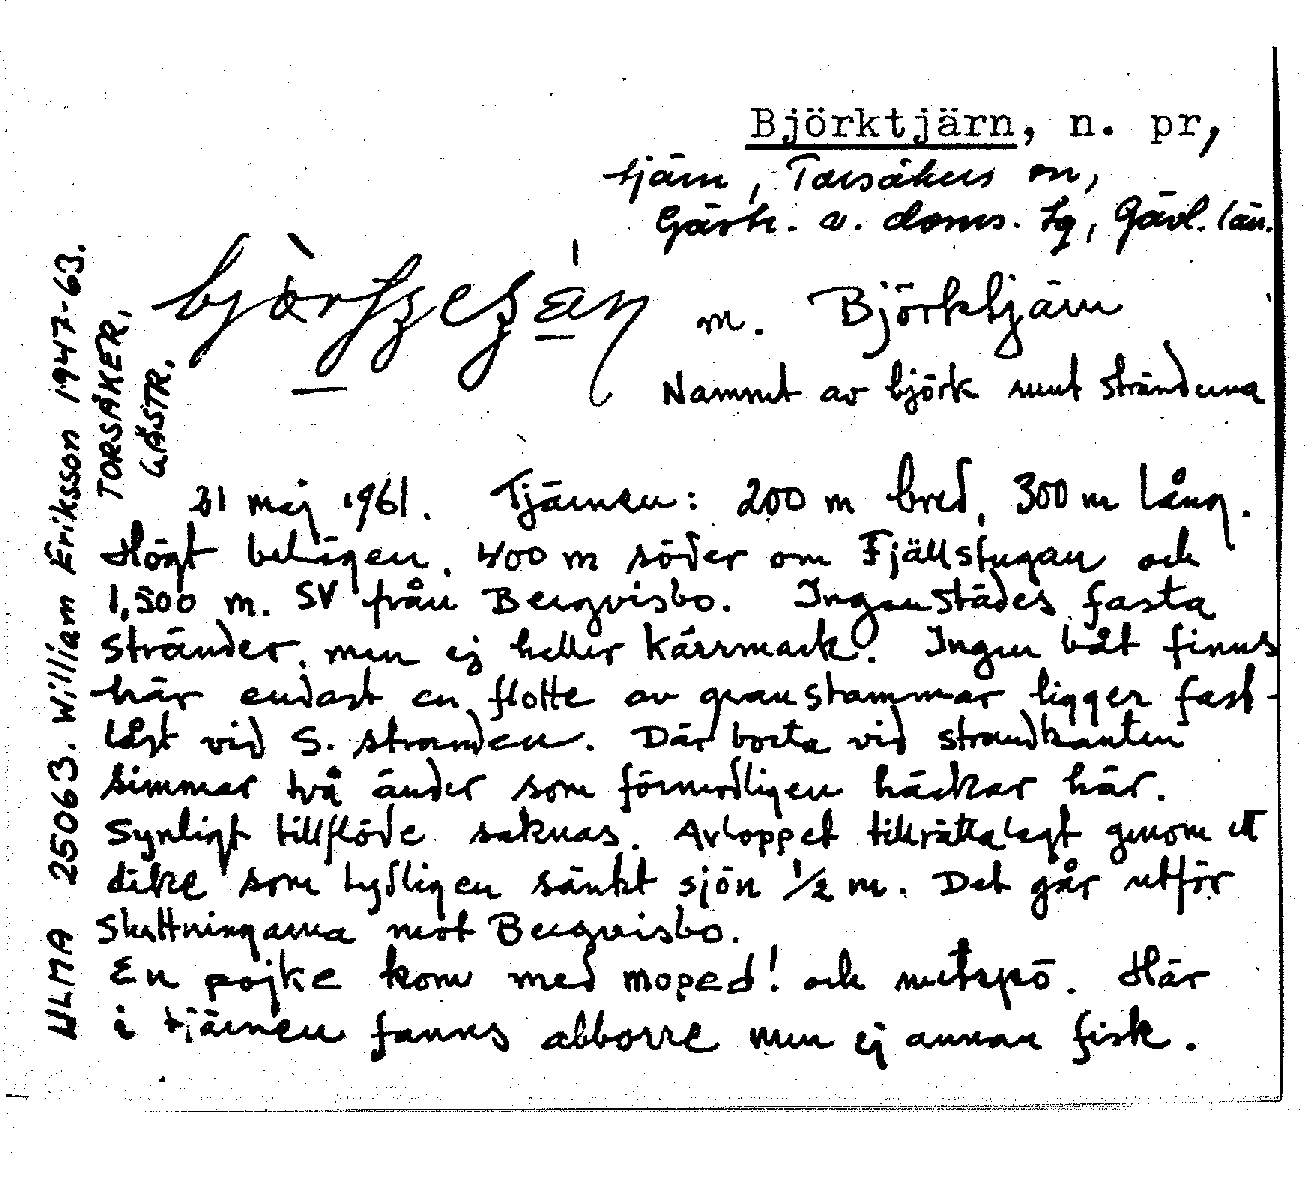 Björktjärn, n. pr,
tjärn, Torsåkers sn,
Gästr. v. doms. tg, Gävl. län.
m. Björktjärn
Namnet av björk runt stränderna
31 maj 1961. Tjärnen: 200 m bred, 300 m lång.
Högt belägen. 400 m söder om Fjällstugan och
1,500 m. SV från Bergvisbo. Ingenstädes fasta
stränder, men ej heller kärrmark. Ingen båt finns
här endast en flotte av granstammar ligger fast-
låst vid S. stranden. Där borta vid strandkanten
simmar två änder som förmodligen häckar här.
Synligt tillflöde saknas. Avloppet tillrättalagt genom ett
dike som tydligen sänkt sjön 1/2 m. Det går utför
sluttningarna mot Bergvisbo.
En pojke kom med moped! och metspö. Här
i tjärnen fanns abborre men ej annan fisk.
ULMA 25063. William Eriksson 1947-63.
TORSÅKER,
GÄSTR.